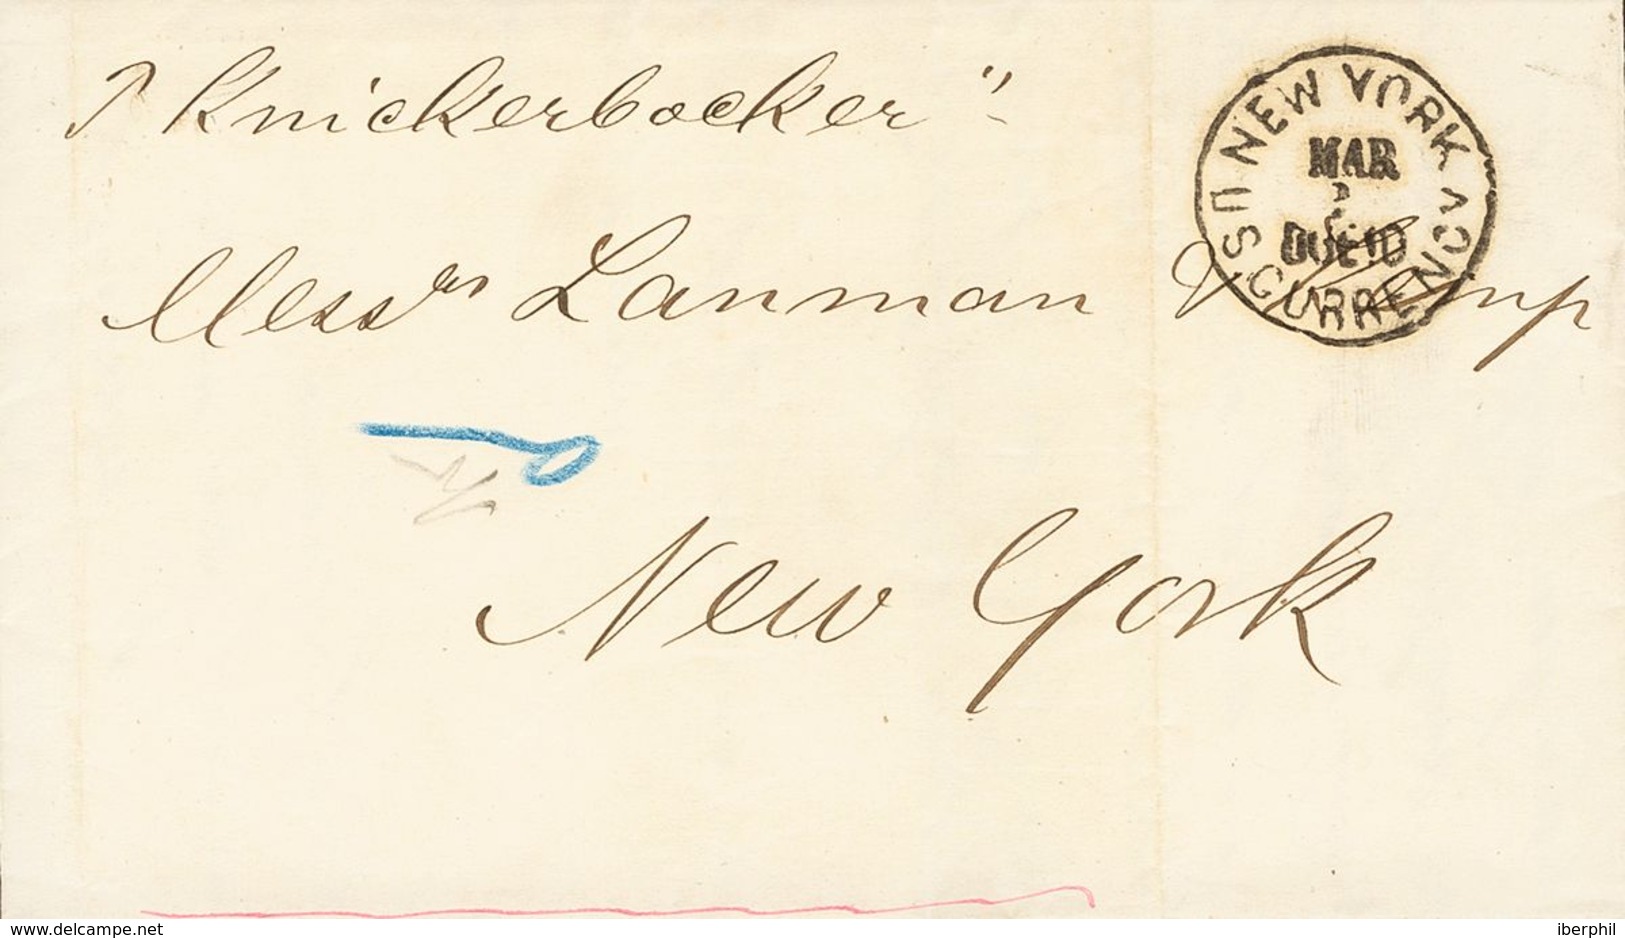 P Knickerbocker"
NEW YORK
MAR
DUE 10
U.S. CURRENCY
Messrs Lanman & Kemp
New York
delcampe.net
iberphil